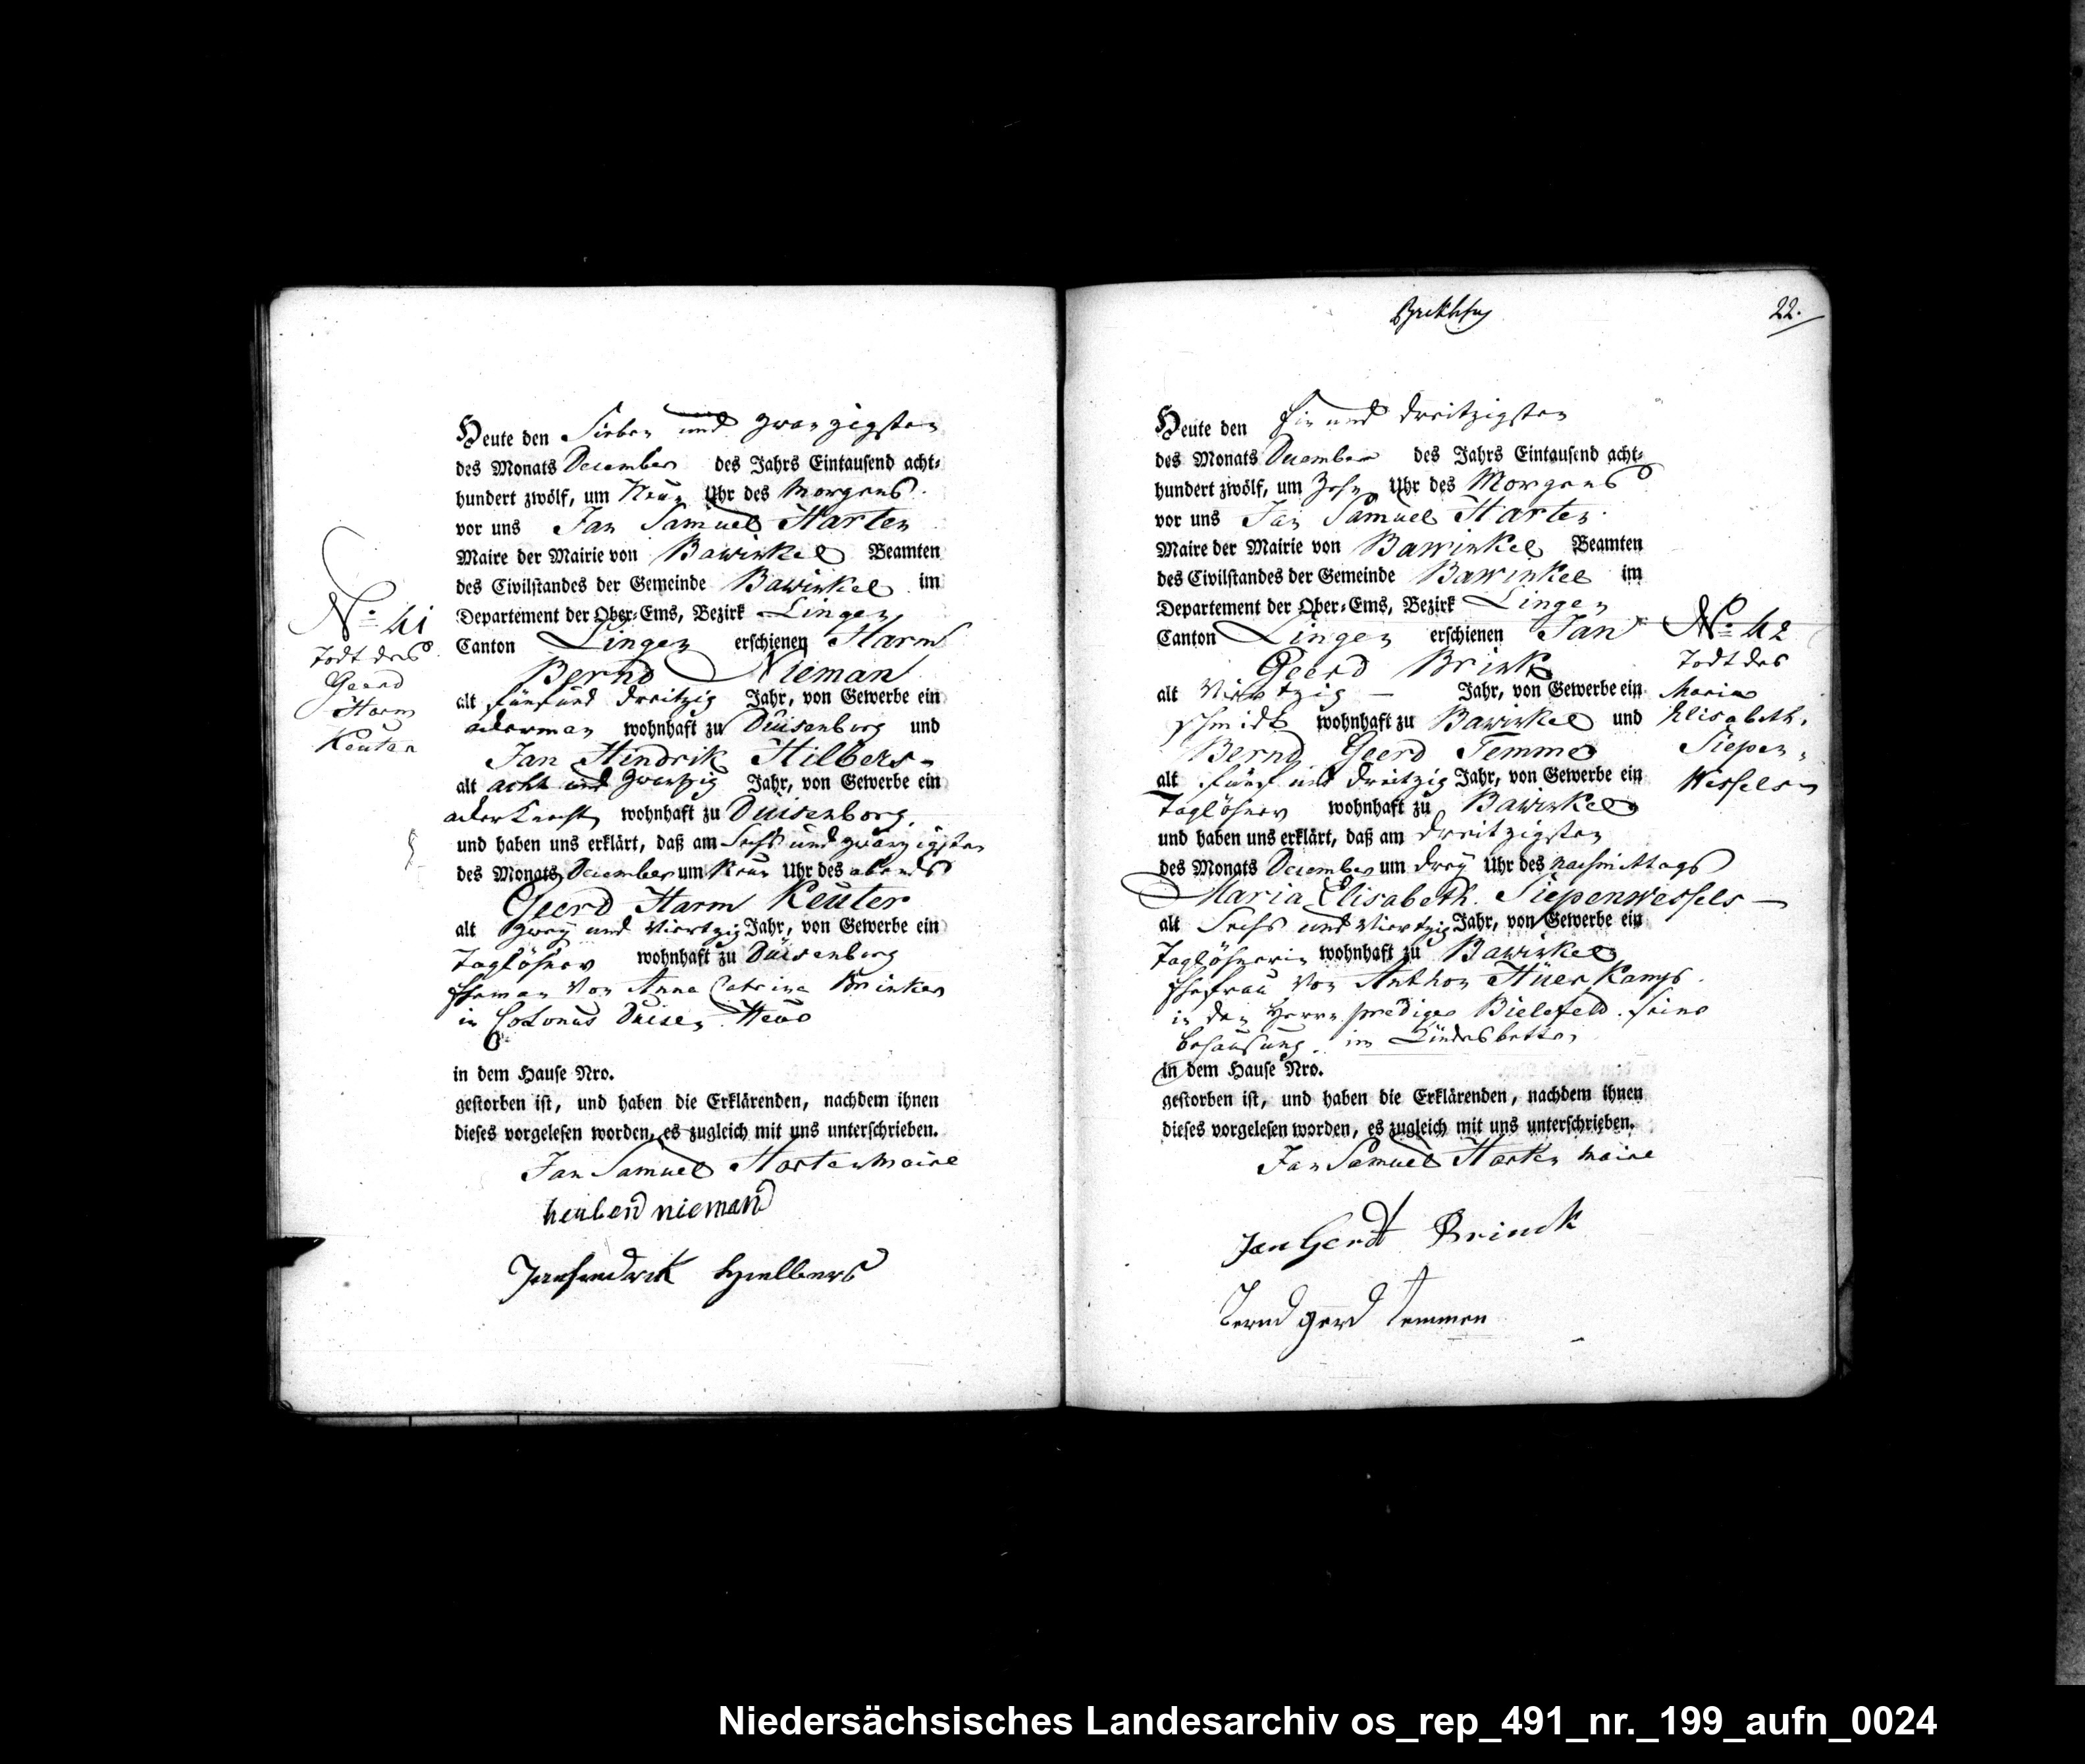 Heute den Sieben und zwanzigsten
des Monats December des Jahrs Eintausend acht-
hundert zwölf, um Neun Uhr des Morgens
vor uns Jan Samuel Harten
Maire der Mairie von Bawinkel Beamten
des Civilstandes der Gemeinde Bawinkel im
Departement der Ober-Ems, Bezirk Lingen
Canton Lingen erschienen Harm
Bernd Nieman
alt fünf und dreitzig Jahr, von Gewerbe ein
ackerman wohnhaft zu Duisenborg und
Jan Hindrik Hilbers -
alt acht und zwanzig Jahr, von Gewerbe ein
ackerknecht wohnhaft zu Duisenborg.
und haben uns erklärt, daß am Sechs und zwanzigsten
des Monats December um Neun Uhr des abends
Geerd Harm Keuter
alt zwey und Viertzig Jahr, von Gewerbe ein
Taglöhner wohnhaft zu Duisenborg
Eheman Von Anna Catrina Brinker
in Colonus Duisen Heus
in dem Hause Nro.
gestorben ist, und haben die Erklärenden, nachdem ihnen
dieses vorgelesen worden, es zugleich mit uns unterschrieben.
Jan Samuel Harten Maire
nieman
No 41
Todt des
Geerd
Harm
Keuter
22.
Heute den Ein und dreitzigsten
des Monats December des Jahrs Eintausend acht-
hundert zwölf, um Zehn Uhr des Morgens
vor uns Jan Samuel Harten
Maire der Mairie von Bawinkel Beamten
des Civilstandes der Gemeinde Bawinkel im
Departement der Ober-Ems, Bezirk Lingen
Canton Lingen erschienen Jan
Geerd Brink
alt Viertzig - Jahr, von Gewerbe ein
Schmidt wohnhaft zu Bawinkel und
Bernd Geerd Temme
alt fünf und dreitzig Jahr, von Gewerbe ein
Taglöhner wohnhaft zu Bawinkel
und haben uns erklärt, daß am dreitzigsten
des Monats December um drey Uhr des nachmittags
Maria Elisabeth Siepenwessels -
alt Sechs und Viertzig Jahr, von Gewerbe ein
Taglöhnerin wohnhaft zu Bawinkel
Ehefrau Von Anthon Hüer Kamp.
in den Herrn prediger Bielefeld. seine
behausung. im Kindesbetten
in dem Hause Nro.
gestorben ist, und haben die Erklärenden, nachdem ihnen
dieses vorgelesen worden, es zugleich mit uns unterschrieben.
Jan Samuel Harten Maire
Jan Gerdt Brinck
Bernd gerd temmen
No 42
Todt des
Maria
Elisabeth
Siepen-
Wessels
Niedersächsisches Landesarchiv os_rep_491_nr._199_aufn_0024